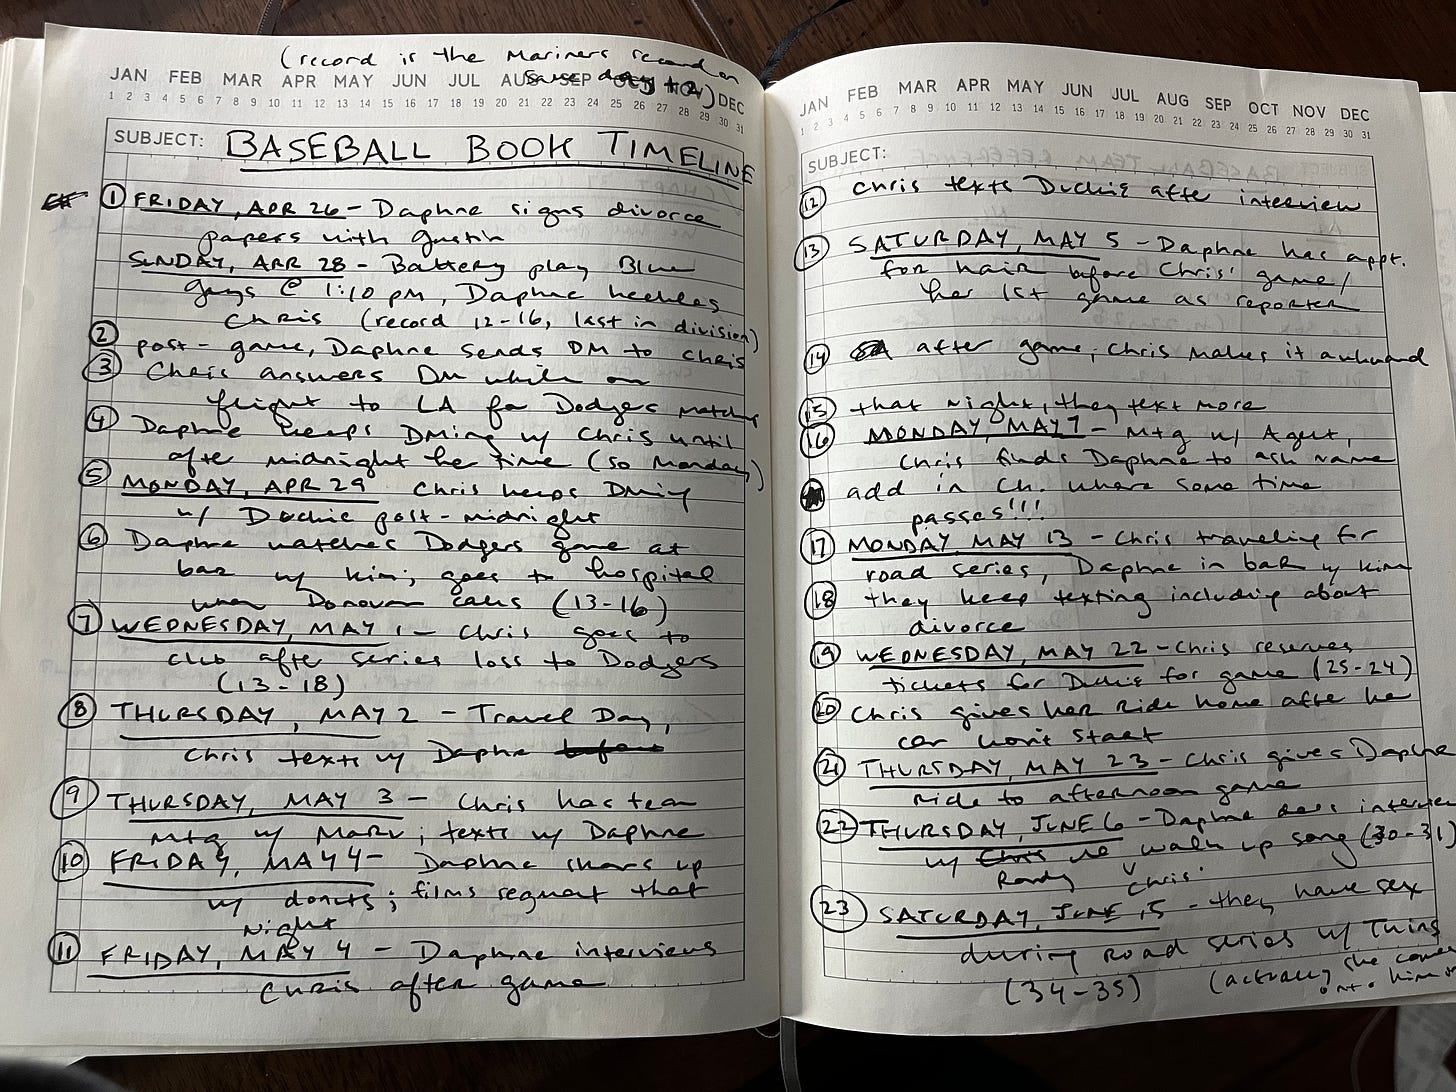 (record is the Mariners record on
same day + 2)
JAN FEB MAR APR MAY JUN JUL AUG SEP OCT NOV DEC
1 2 3 4 5 6 7 8 9 10 11 12 13 14 15 16 17 18 19 20 21 22 23 24 25 26 27 28 29 30 31
SUBJECT: BASEBALL BOOK TIMELINE
1 FRIDAY, APR 26 - Daphne signs divorce
papers with Justin
SUNDAY, APR 28 - Battery play Blue
Guys @ 1:10 pm, Daphne heckles
Chris (record 12-16, last in division)
2 post-game, Daphne sends DM to Chris
3 Chris answers DM while on
flight to LA for Dodgers matchup
4 Daphne keeps DMing w/ Chris until
after midnight her time (so Monday)
5 MONDAY, APR 29 Chris keeps DMing
w/ Duckie post-midnight
6 Daphne watches Dodgers game at
bar w/ Kim; goes to hospital
when Donovan calls (13-16)
7 WEDNESDAY, MAY 1 - Chris goes to
club after series loss to Dodgers
(13-18)
8 THURSDAY, MAY 2 - Travel Day,
Chris texts w/ Daphne
9 THURSDAY, MAY 3 - Chris has team
mtg w/ Marv; texts w/ Daphne
10 FRIDAY, MAY 4 - Daphne shows up
w/ donuts; films segment that
night
11 FRIDAY, MAY 4 - Daphne interviews
Chris after game
JAN FEB MAR APR MAY JUN JUL AUG SEP OCT NOV DEC
1 2 3 4 5 6 7 8 9 10 11 12 13 14 15 16 17 18 19 20 21 22 23 24 25 26 27 28 29 30 31
SUBJECT:
12 Chris texts Duckie after interview
13 SATURDAY, MAY 5 - Daphne has appt.
for hair before Chris' game/
her 1st game as reporter
14 after game, Chris makes it awkward
15 that night, they text more
16 MONDAY, MAY 7 - Mtg w/ Agent,
Chris finds Daphne to ask name
add in Ch. where some time
passes!!!
17 MONDAY, MAY 13 - Chris traveling for
road series, Daphne in bar w/ Kim
18 they keep texting including about
divorce
19 WEDNESDAY, MAY 22 - Chris reserves
tickets for Duckie for game (25-24)
20 Chris gives her ride home after her
car won't start
21 THURSDAY, MAY 23 - Chris gives Daphne
ride to afternoon game
22 THURSDAY, JUNE 6 - Daphne does interview
w/ Chris re walk up song (30-31)
Randy Chris'
23 SATURDAY, JUNE 15 - they have sex
during road series w/ Twins
(34-35) (actually she comes
him